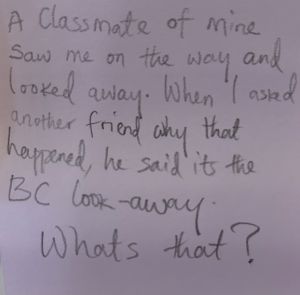 A Classmate of mine
Saw me on the way and
looked away. When I asked
another friend why that
happened, he said its the
BC look-away.
Whats that?